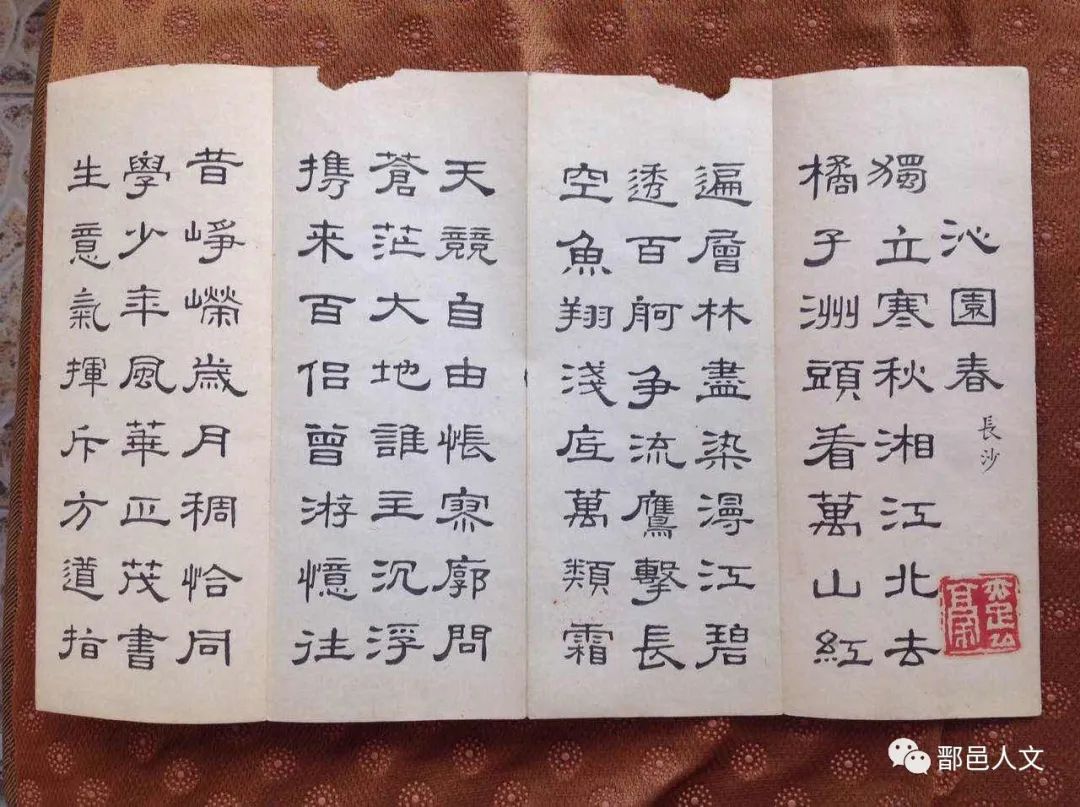 沁園春
長沙
獨立寒秋湘江北去
橘子洲頭看萬山紅
遍層林盡染漫江碧
透百舸争流鷹擊長
空魚翔淺底萬類霜
天競自由悵寥廓問
蒼茫大地誰主沉浮
携来百侣曾游憶往
昔崢嶸歲月稠恰同
學少年風華正茂書
生意氣揮斥方道指
鄑邑人文